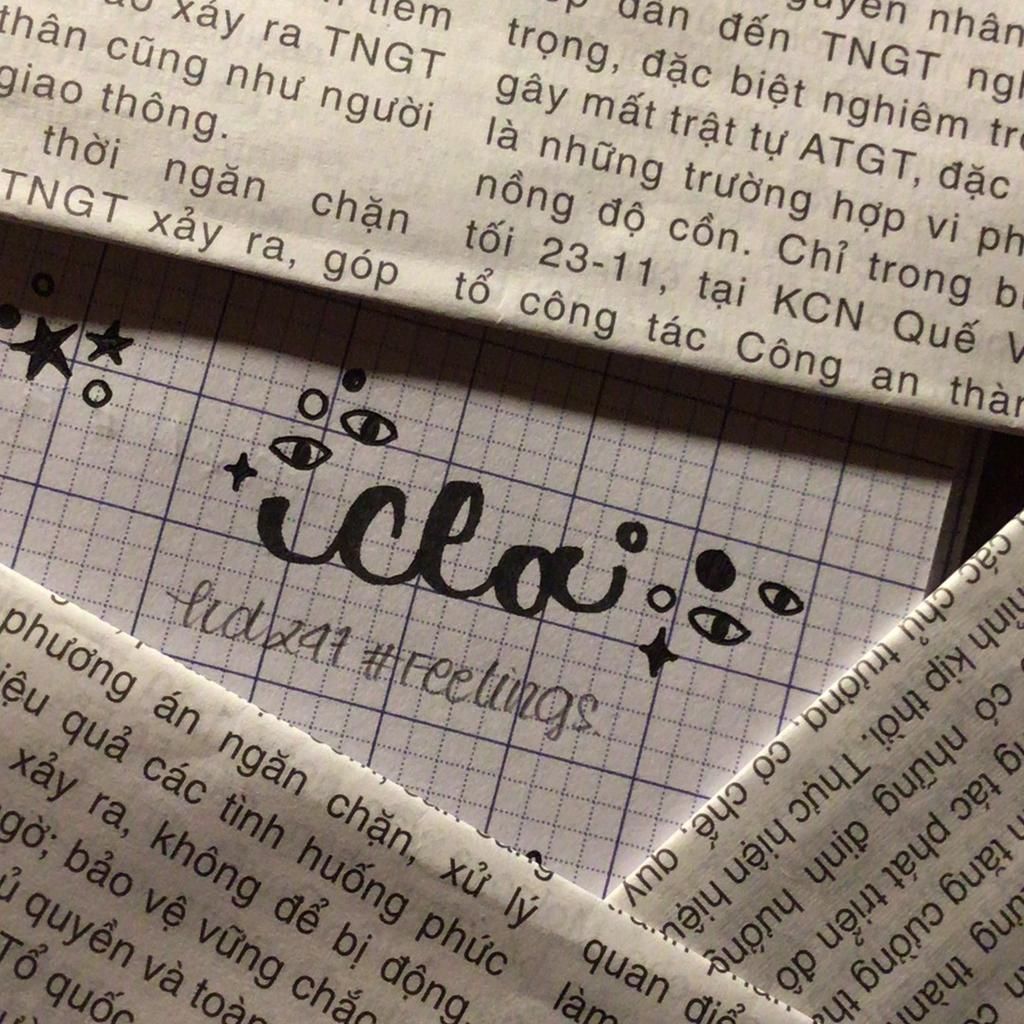 xảy ra TNGT
thân cũng như người
giao thông.
thời ngăn chặn
TNGT xảy ra, góp
dẫn đến TNGT
trọng, đặc biệt nghiêm
gây mất trật tự ATGT, đặc
là những trường hợp vi
nồng độ cồn. Chỉ trong
tối 23-11, tại KCN Quế
tổ công tác Công an
icla
#Feelings
phương án ngăn chặn, xử lý
quả các tình huống phức
xảy ra, không để bị động,
bảo vệ vững chắc
quyền và toàn
Tổ quốc
quan
làm
các chủ trương, cơ chế,
kịp thời. Thực hiện hiệu
có những định hướng
tác phát triển đô
tăng cường